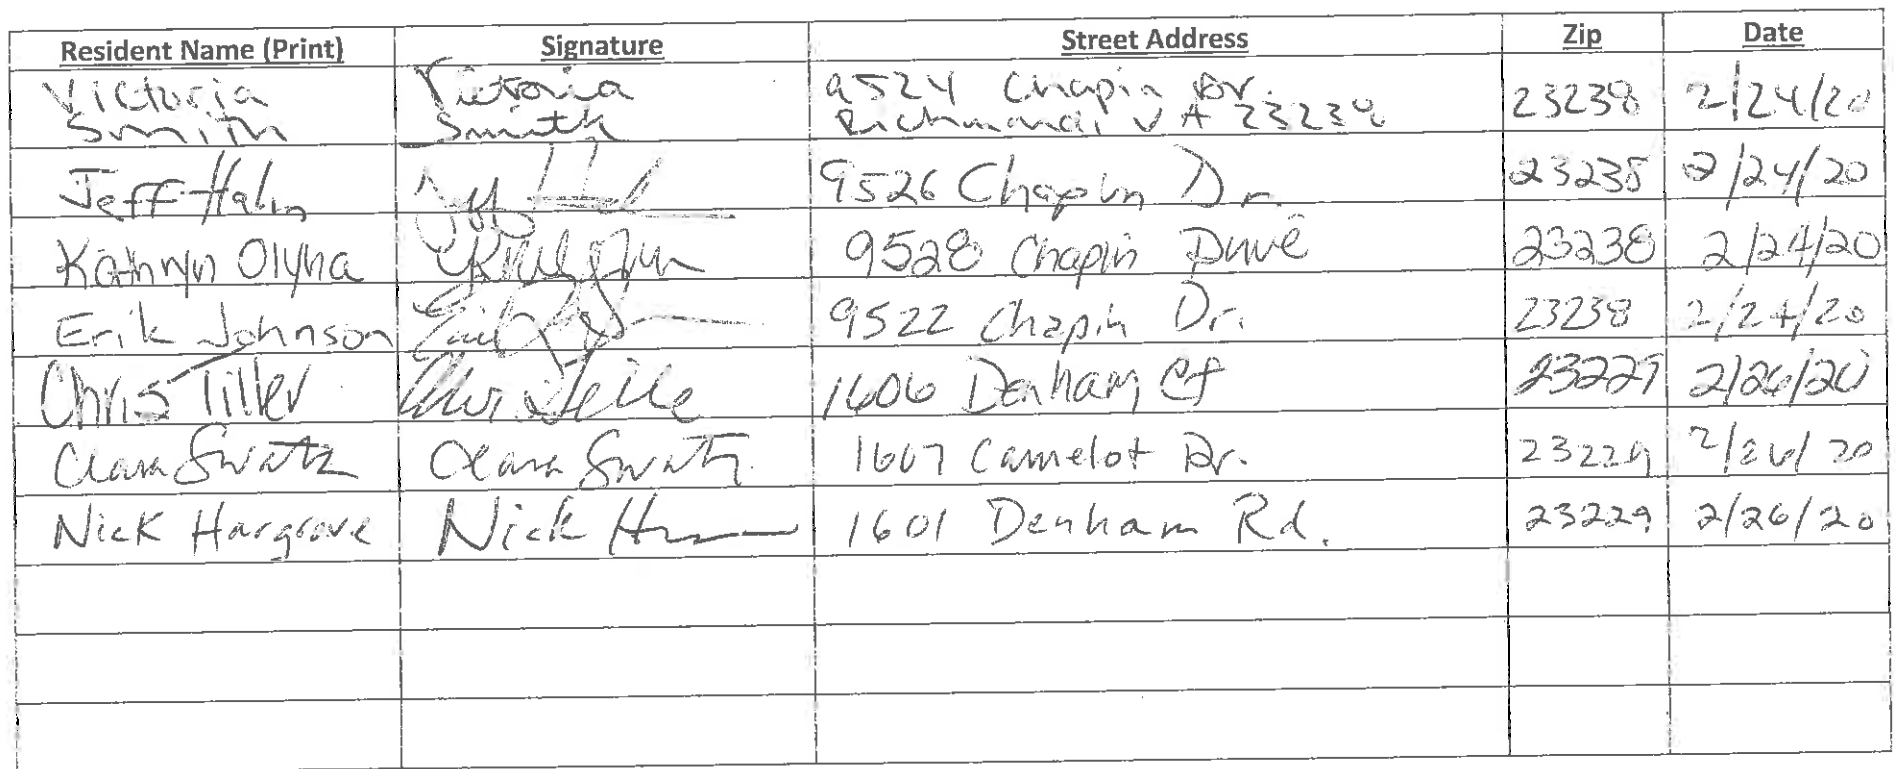 Resident Name (Print) Signature Street Address Zip Date
Victoria Victoria 9524 Chapin Dr. 23238 2/24/20
Smith Smith Richmond, VA 23238
Jeff Hahn Jeff 9526 Chapin Dr. 23238 2/24/20
Kathryn Olyha 9528 Chapin Drive 23238 2/24/20
Erik Johnson Erik 9522 Chapin Dr. 23238 2/24/20
Chris Tiller Chris Tille 1606 Denham Ct 23229 2/26/20
Clara Swartz Clara Swartz 1607 Camelot Dr. 23229 2/26/20
Nick Hargrove Nick 1601 Denham Rd. 23229 2/26/20